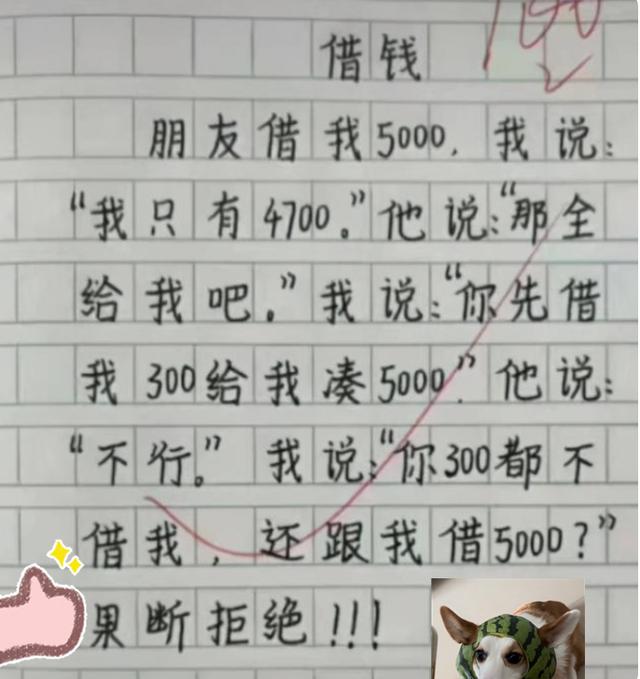 100
借钱
朋友借我5000，我说：
“我只有4700。”他说：“那全
给我吧。”我说：“你先借
我300给我凑5000”他说：
“不行。”我说：“你300都不
借我，还跟我借5000？”
果断拒绝!!!